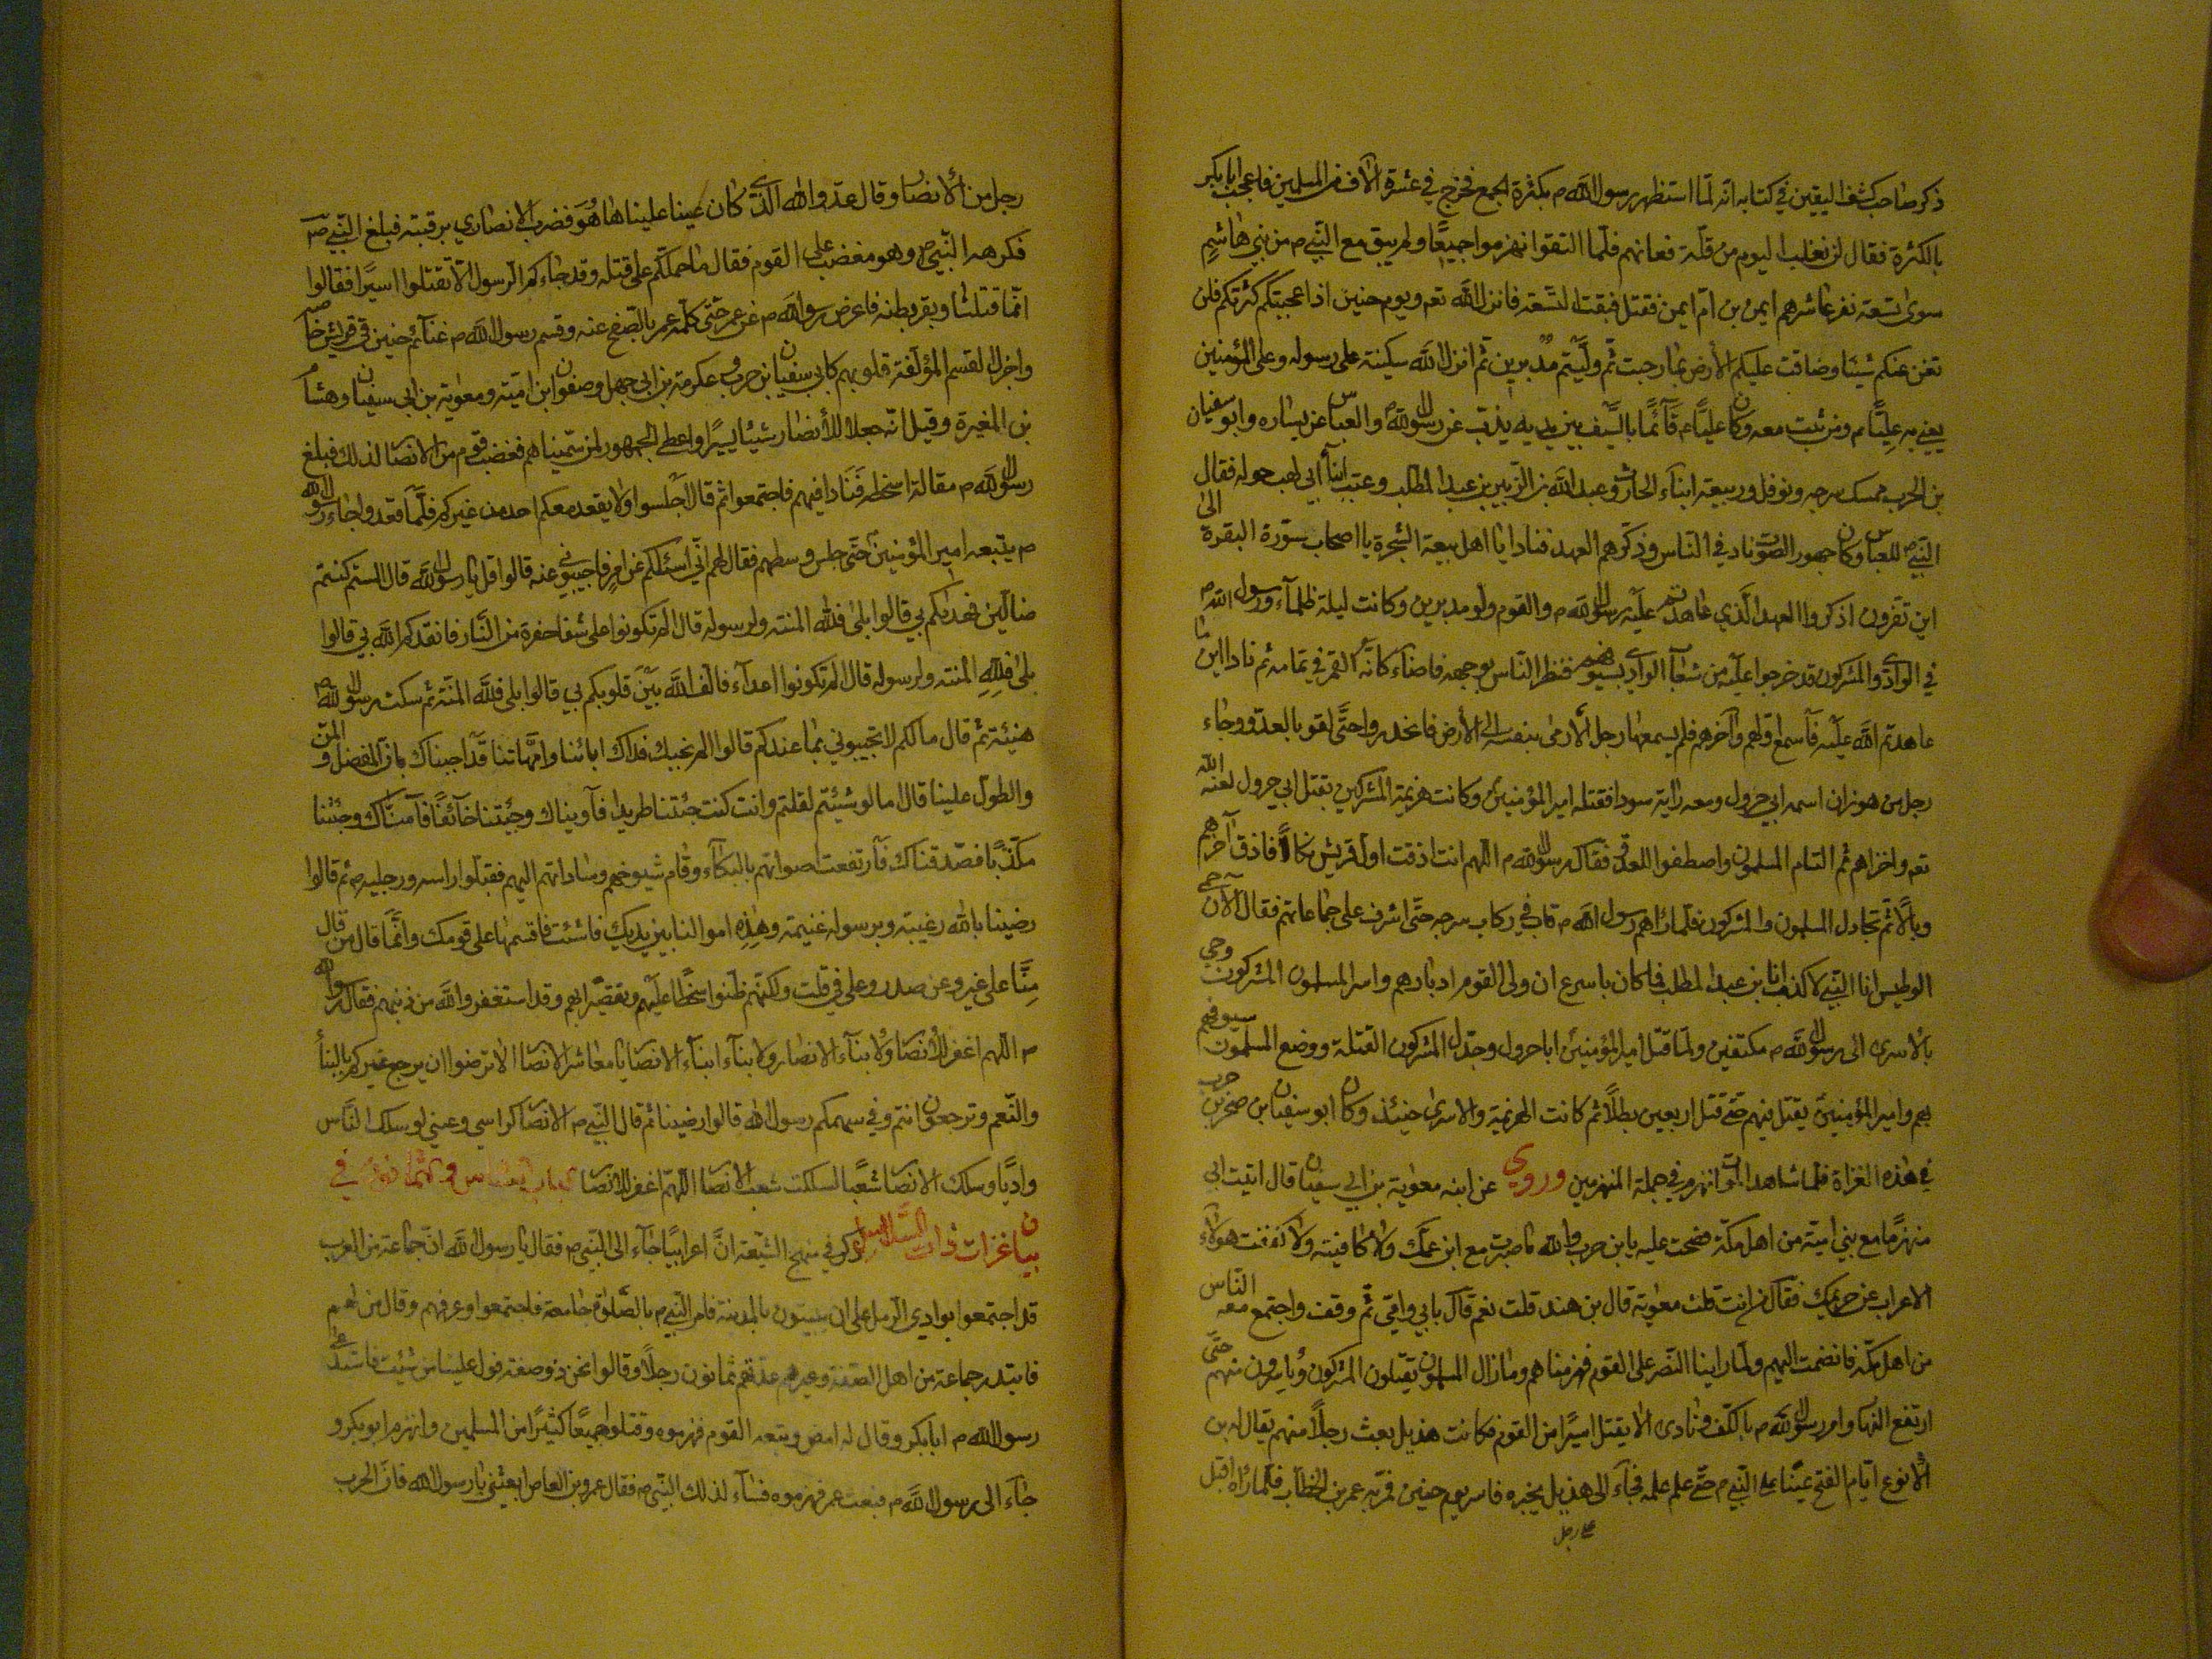 ذكر صاحب كشف اليقين في كتابه انه لما استظهر رسول الله ص بكثرة الجمع فخرج في عشرة الاف من المسلمين فاعجب ابا بكر
بالكثرة فقال لن نغلب اليوم من قلة فعانهم فلما التقوا انهزموا جميعا ولم يبق مع النبي ص من بني هاشم
سوى تسعة نفر عاشرهم ايمن بن ام ايمن فقتل فبقت التسعة فانزل الله تعم ويوم حنين اذا عجبتكم كثرتكم فلن
تغن عنكم شيئا وضاقت عليكم الارض بما رحبت ثم وليتم مدبرين ثم انزل الله سكينته على رسوله وعلى المؤمنين
يعني به عليا م ومن ثبت معه وكان عليا ع قآئما بالسيف بين يديه يذب عن رسول الله ص والعباس عن يساره وابو سفيان
بن الحرب ممسك سرجه ونوفل وربيعة ابناء الحارث وعبد الله بن الزبير بن عبد المطلب وعتبة ابنا ابي لهب حوله فقال
النبي ص للعباس وكان جهور الصوت ناد في الناس وذكرهم العهد فنادا يا اهل بيعة الشجرة يا اصحاب سورة البقرة الى
اين تفرون اذكروا العهد الذي عاهدتم عليه رسول الله م والقوم ولو مدبرين وكانت ليلة ظلمآء ورسول الله ص
في الوادي والمشركون قد خرجوا عليه من شعاب الوادي بسيوفهم فنظر الناس بوجهه فاضاء كانه القمر في تمامه ثم نادا اين ما
عاهدتم الله عليه فآسمع اولهم وآخرهم فلم يسمعها رجل الا رمى بنفسه الى الأرض فانحدروا حتى لقو بالعدو وجاء
رجل من هوزان اسمه ابي جرول ومعه راية سودا فقتله امير المؤمنين وكانت هزيمة المشركين بقتل ابي جرول لعنه الله
تعم واخزاهم ثم التام المسلمون واصطفوا للعدو فقال رسول الله م اللهم انت اذقت اول قريش نكالا فاذق آخرهم
وبالا ثم تجادل المسلمون والمشركون فلما راهم رسول الله م قام في ركاب سرجه حتى اشرف على جماعاتهم فقال الآن حمي
الوطيس انا النبي لا كذب انا بن عبد المطلب فما كان باسرع ان ولى القوم ادبارهم واسر المسلمون المشركون وجئ
بالاسرى الى رسول الله م مكتفين ولما قتل امير المؤمنين ابا جرول وجدل المشركون القتلة ووضع المسلمون سيوفهم
بهم وامير المؤمنين يقتل فيهم حتى قتل اربعين بطلا ثم كانت الهزيمة والاسرى حينئذ وكان ابو سفيان بن صخر بن حرب
في هذه الغزاة فلما شاهد الموت انهزم في جملة المنهزمين وروي عن ابنه معوية بن ابي سفيان قال اتيت ابي
منهزما مع بني امية من اهل مكة فصحت عليه يا بن حرب والله ما صبرت مع ابن عمك ولا كافيته ولا كففت هولاء
الاعراب عن حريمك فقال من انت قلت معوية قال بن هند قلت نعم قال بابي وامي ثم وقف واجتمع معه الناس
من اهل مكة فانضمت اليهم ولما راينا النصر على القوم فهزمناهم وما زال المسلمون يقتلون المشركون ويأسرون منهم حتى
ارتفع النهار وامر رسول الله م بالكف ونادى الا يقتل اسيرا من القوم فكانت هذيل بعث رجلا منهم يقال له بن
الانوع ايام الفتح عينا على النبي م حتى علم علمه فجآء الى هذيل يخبره فاسر يوم حنين فمر به عمر بن الخطاب فلما راه اقبل
على رجل
رجل من الأنصار وقال عدو الله الذي كان عينا علينا ها هو فضرب الانصاري برقبته فبلغ النبي ص
فكره النبي ص وهو مغضب على القوم فقال ما حملكم على قتله وقد جاءكم الرسول لا تقتلوا اسيرا فقالوا
انما قتلنا وبقر بطنه فاعرض رسول الله م عن عمر حتى كلمه عمر بالصفح عنه وقسم رسول الله م غنائم حنين في قريش خاصة
واجزل القسم المؤلفة قلوبهم كابي سفيان بن حرب وعكرمة بن ابي جهل وصفوان ابن امية ومعوية بن ابي سفيان وهشام
بن المغيرة وقيل انه جعل للأنصار شيئا يسيرا واعطى الجمهور لمن سميناهم فغضب قوم من الانصار لذلك فبلغ
رسول الله م مقالة اسخطه فنادا فيهم فاجتمعوا ثم قال اجلسوا ولا يقعد معكم احد من غيركم فلما قعدوا جاء رسول الله
م يتبعه امير المؤمنين حتى جلس وسطهم فقال لهم اني اسئلكم عن امر فاجيبوني عنه قالوا قل يا رسول الله قال الستم كنتم
ضالين فهداكم بي قالوا بلى فلله المنة ولرسوله قال الم تكونوا على شفا حفرة من النار فانقذكم الله بي قالوا
بلى فلله المنة ولرسوله قال الم تكونوا اعدآء فالف الله بين قلوبكم بي قالوا بلى فلله المنة ثم سكت رسول الله ص
هنيئة ثم قال ما لكم لا تجيبوني بما عندكم قالوا الم نجبك فداك ابائنا وامهاتنا قد اجبناك بان الفضل والمن
والطول علينا قال اما لو شيئتم لقلتم وانت كنت جئتنا طريدا فآويناك وجئتنا خآئفا فآمناك وجئتنا
مكذبا فصدقناك فآرتفعت اصواتهم بالبكآء وقام شيوخهم وساداتهم اليهم فقبلوا راسه ورجليه ص ثم قالوا
رضينا بالله رغيبة وبرسوله غنيمة وهذه اموالنا بين يديك فاشئت فاقسمها على قومك وانما قال من قال
منا على غير وعن صدر وعلى في قلت ولكنهم ظنوا سخطا عليهم وتقصيرا بهم وقد استغفروا الله من ذنبهم فقال رسول الله
م اللهم اغفر للأنصار ولابناء الانصار ولابناء ابنآء الانصار يا معاشر الانصار الا ترضوا ان يرجع غيركم بالشاة
والنعم وترجعون انتم وفي سهمكم رسول الله قالوا رضينا ثم قال النبي م الانصار كراسي وعيني لو سلك الناس
واديا وسلك الانصار شعبا لسلكت شعب الانصار اللهم اغفر للانصار
بيان غزات ذات السلاسل ذكر في منهج الشيعة ان اعرابيا جآء الى النبي م فقال يا رسول الله ان جماعة من العرب
قد اجتمعوا بوادي الرمل على ان يبيتون بالمدينة فامر النبي م بالصلوة جامعة فاجتمعوا وعرفهم وقال من لهم
فابتدر جماعة من اهل الصفة وغيرهم عدتهم ثمانون رجلا وقالوا نحن فول علينا من شئت فاستدعى
رسول الله م ابا بكر وقال له امض ويتبعه القوم فهزموه وقتلوا جميعا كثيرا من المسلمين وانهزم ابو بكر و
جآء الى رسول الله م فبعث عمر فهزموه فسآء لذلك النبي ص فقال عمرو بن العاص ابعثني يا رسول الله فان الحرب